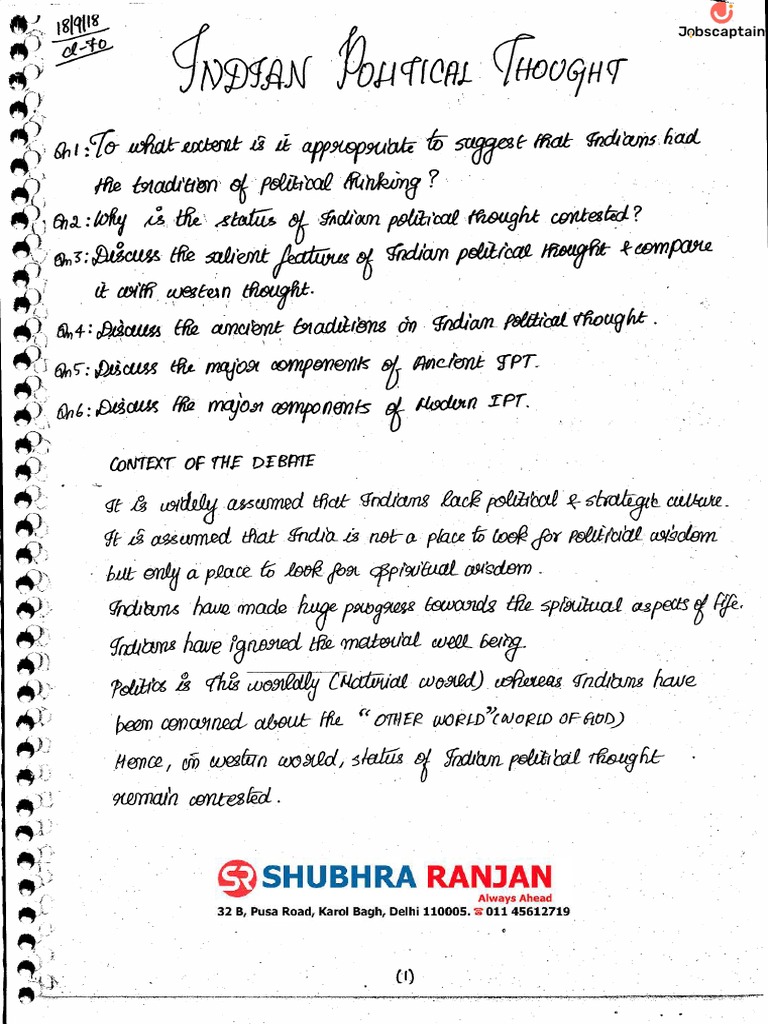 18/9/18
cl-70
Jobscaptain
INDIAN POLITICAL THOUGHT
Qn1: To what extent is it appropriate to suggest that Indians had
the tradition of political thinking?
Qn2: Why is the status of Indian political thought contested?
Qn3: Discuss the salient features of Indian political thought & compare
it with western thought.
Qn4: Discuss the ancient traditions in Indian Political Thought.
Qn5: Discuss the major components of Ancient IPT.
Qn6: Discuss the major components of Modern IPT.
CONTEXT OF THE DEBATE
It is widely assumed that Indians lack political & strategic culture.
It is assumed that India is not a place to look for political wisdom
but only a place to look for spiritual wisdom.
Indians have made huge progress towards the spiritual aspects of life.
Indians have ignored the material well being.
Politics is this worldly (Material world) whereas Indians have
been concerned about the "OTHER WORLD" (WORLD OF GOD)
Hence, in western world, status of Indian political thought
remain contested.
SR SHUBHRA RANJAN
Always Ahead
32 B, Pusa Road, Karol Bagh, Delhi 110005. ☎ 011 45612719
(1)